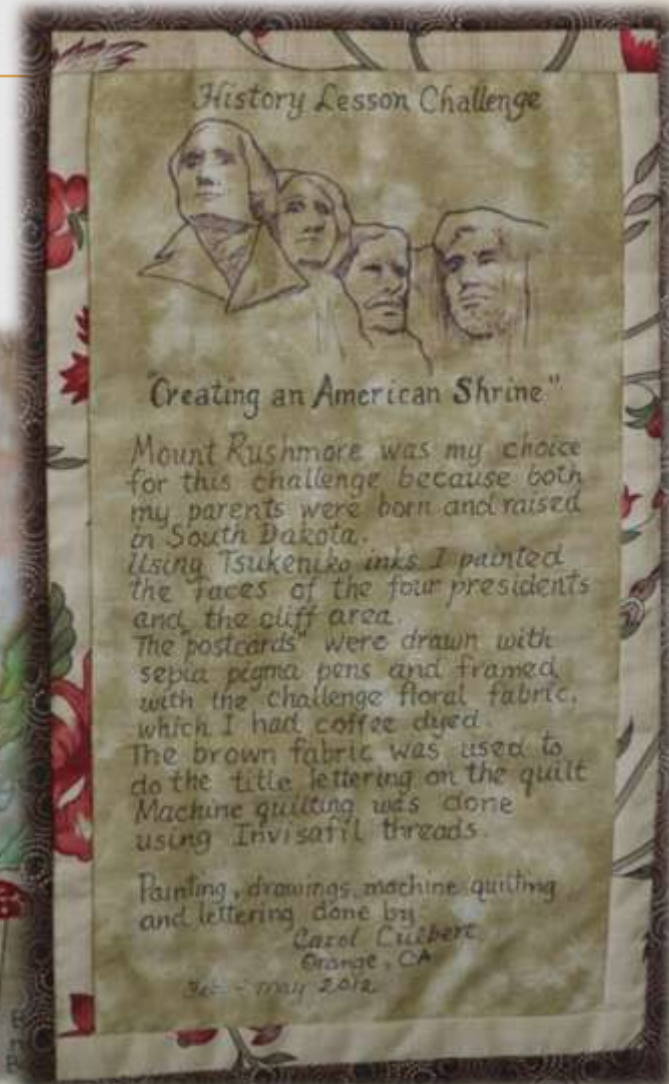 History Lesson Challenge
"Creating an American Shrine"
Mount Rushmore was my choice
for this challenge because both
my parents were born and raised
in South Dakota.
Using Tsukeniko inks I painted
the faces of the four presidents
and the cliff area.
The "postcards" were drawn with
sepia pigma pens and framed
with the challenge floral fabric,
which I had coffee dyed.
The brown fabric was used to
do the title lettering on the quilt
Machine quilting was done
using Invisafil threads.
Painting, drawings, machine quilting
and lettering done by
Carol Culbert
Orange, CA
Feb - May 2012